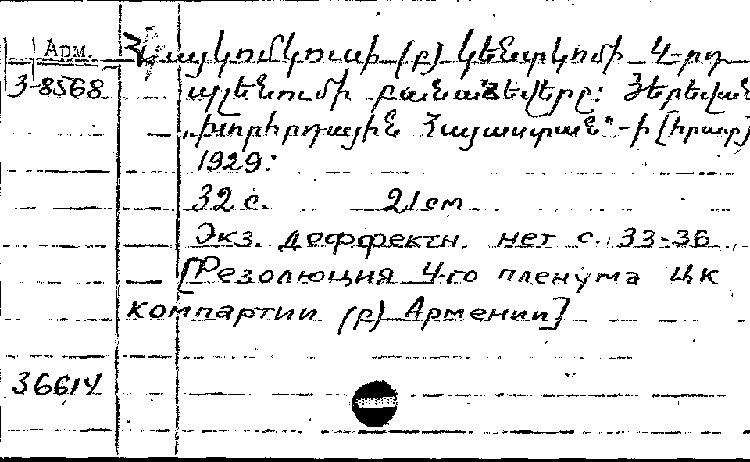 Арм. Հայկոմկուսի (բ) կենտկոմի 4-րդ
3-8568 պլենումի բանաձեվերը: Յերեվան
„Խորհրդային Հայաստան"-ի [հրատ]
1929:
32 с. 21 см
Экз. деффектн. нет с. 33-36
[Резолюция 4-го пленума ЦК
компартии (р) Армении]
36614